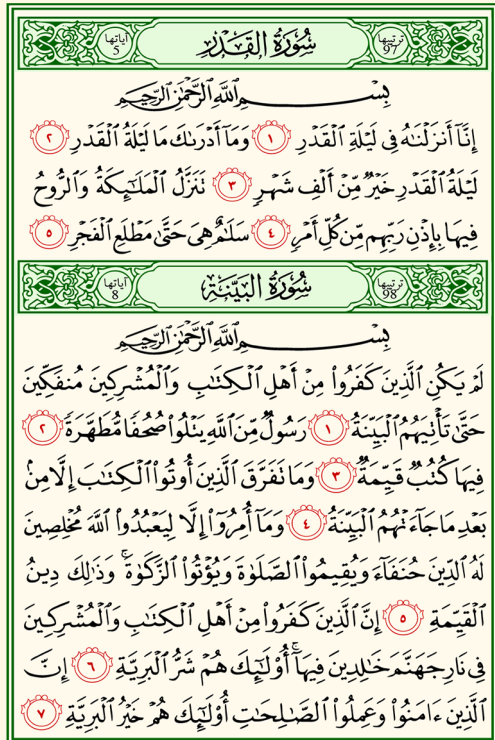 ترتيبها 97 سُورَةُ القَدْرِ آياتها 5
بِسْمِ اللَّهِ الرَّحْمَٰنِ الرَّحِيمِ
إِنَّآ أَنزَلْنَٰهُ فِى لَيْلَةِ ٱلْقَدْرِ ١ وَمَآ أَدْرَىٰكَ مَا لَيْلَةُ ٱلْقَدْرِ ٢
لَيْلَةُ ٱلْقَدْرِ خَيْرٌ مِّنْ أَلْفِ شَهْرٍ ٣ تَنَزَّلُ ٱلْمَلَٰٓئِكَةُ وَٱلرُّوحُ
فِيهَا بِإِذْنِ رَبِّهِم مِّن كُلِّ أَمْرٍ ٤ سَلَٰمٌ هِىَ حَتَّىٰ مَطْلَعِ ٱلْفَجْرِ ٥
ترتيبها 98 سُورَةُ البَيِّنَةِ آياتها 8
بِسْمِ اللَّهِ الرَّحْمَٰنِ الرَّحِيمِ
لَمْ يَكُنِ ٱلَّذِينَ كَفَرُوا۟ مِنْ أَهْلِ ٱلْكِتَٰبِ وَٱلْمُشْرِكِينَ مُنفَكِّينَ
حَتَّىٰ تَأْتِيَهُمُ ٱلْبَيِّنَةُ ١ رَسُولٌ مِّنَ ٱللَّهِ يَتْلُوا۟ صُحُفًا مُّطَهَّرَةً ٢
فِيهَا كُتُبٌ قَيِّمَةٌ ٣ وَمَا تَفَرَّقَ ٱلَّذِينَ أُوتُوا۟ ٱلْكِتَٰبَ إِلَّا مِنۢ
بَعْدِ مَا جَآءَتْهُمُ ٱلْبَيِّنَةُ ٤ وَمَآ أُمِرُوٓا۟ إِلَّا لِيَعْبُدُوا۟ ٱللَّهَ مُخْلِصِينَ
لَهُ ٱلدِّينَ حُنَفَآءَ وَيُقِيمُوا۟ ٱلصَّلَوٰةَ وَيُؤْتُوا۟ ٱلزَّكَوٰةَ ۚ وَذَٰلِكَ دِينُ
ٱلْقَيِّمَةِ ٥ إِنَّ ٱلَّذِينَ كَفَرُوا۟ مِنْ أَهْلِ ٱلْكِتَٰبِ وَٱلْمُشْرِكِينَ
فِى نَارِ جَهَنَّمَ خَٰلِدِينَ فِيهَآ ۚ أُو۟لَٰٓئِكَ هُمْ شَرُّ ٱلْبَرِيَّةِ ٦ إِنَّ
ٱلَّذِينَ ءَامَنُوا۟ وَعَمِلُوا۟ ٱلصَّٰلِحَٰتِ أُو۟لَٰٓئِكَ هُمْ خَيْرُ ٱلْبَرِيَّةِ ٧